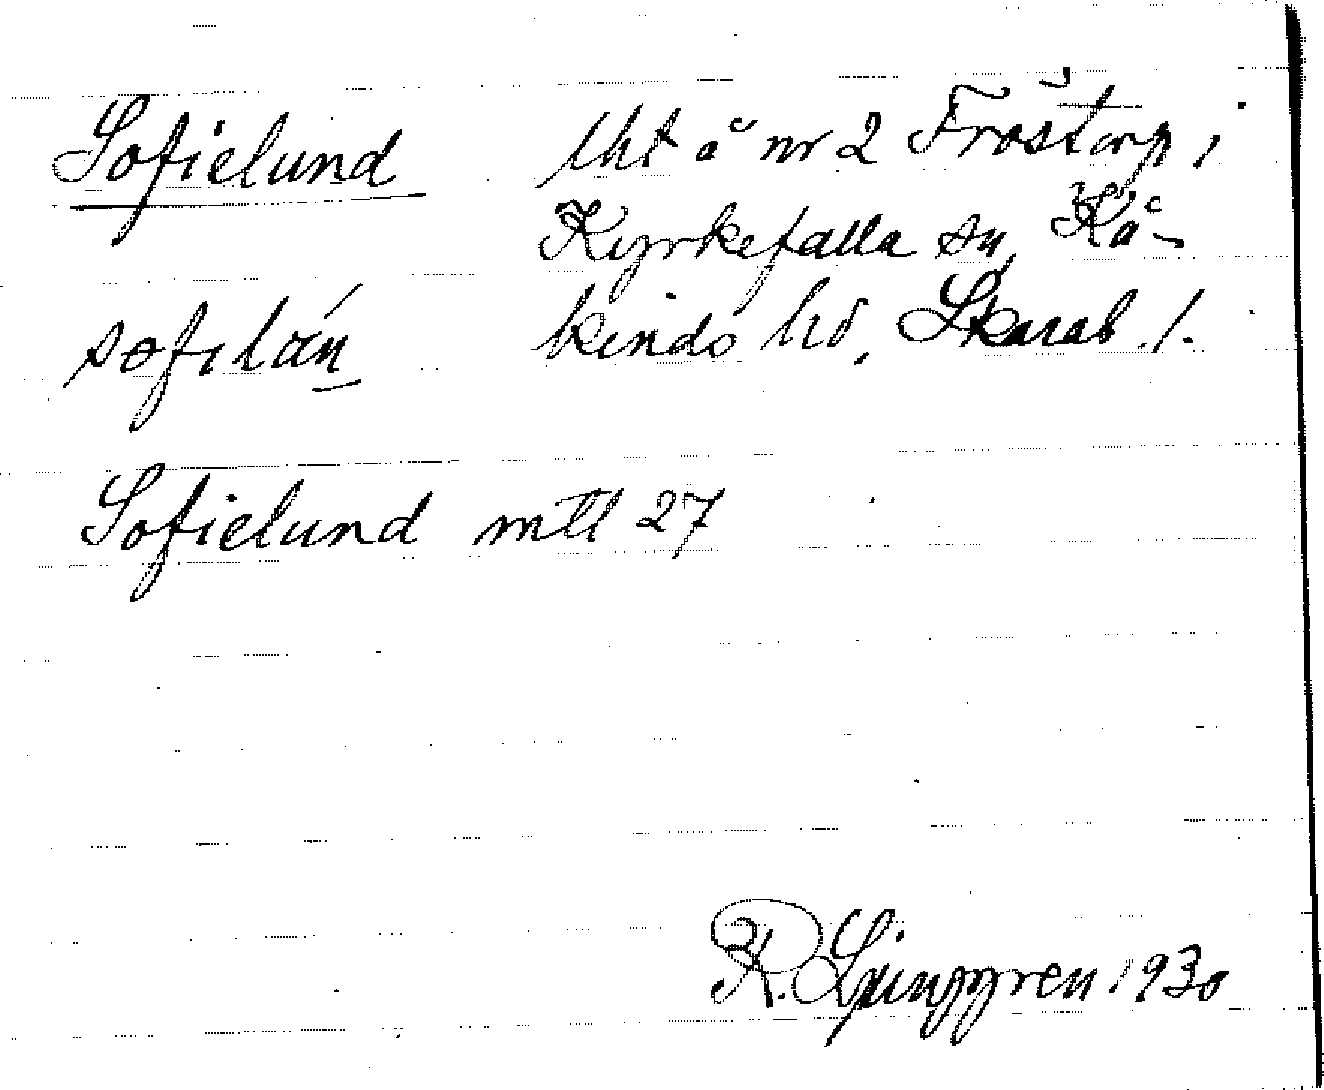 Sofielund lht å nr 2 Frostorp i
Kyrkefalla sn, Kå-
sofilún kinds hd, Skarab. l.
Sofielund mtl 27
R. Ljunggren 1930